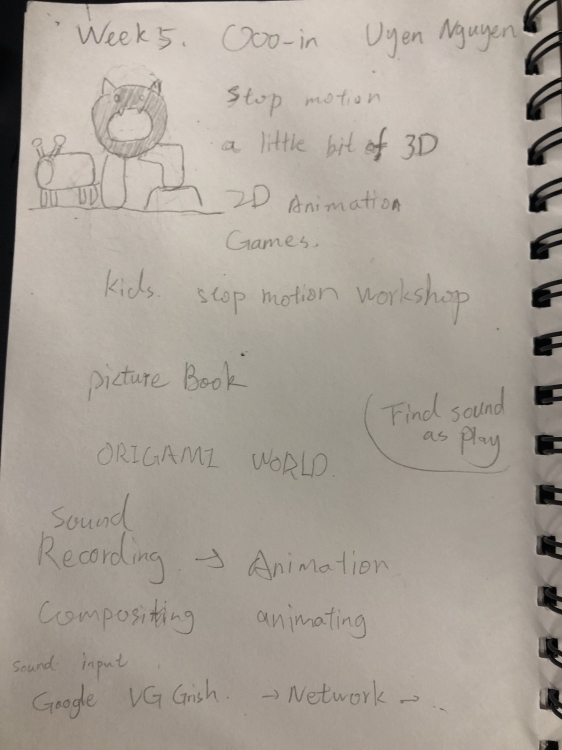 Week 5. Ooo-in Uyen Nguyen
Stop motion
a little bit of 3D
2D Animation
Games.
kids. stop motion workshop
picture Book
Find sound
as play
ORIGAMI WORLD.
Sound
Recording → Animation
Compositing animating
Sound input.
Google VG → Network → ..